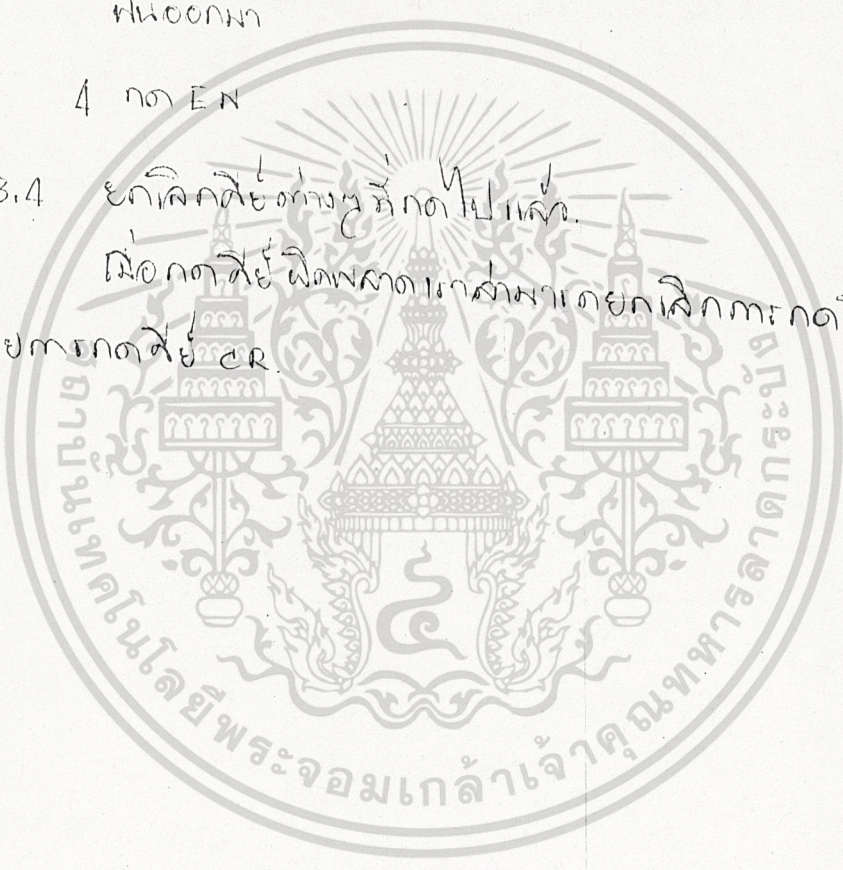 ฟันออกมา
4 กด EN
3.4 ยกเลิกคีย์ต่างๆที่กดไปแล้ว.
เมื่อกดคีย์ ผิดพลาด เราสามารถยกเลิกการกด
ยการกดคีย์ CR.
สถาบันเทคโนโลยีพระจอมเกล้าเจ้าคุณทหารลาดกระบัง